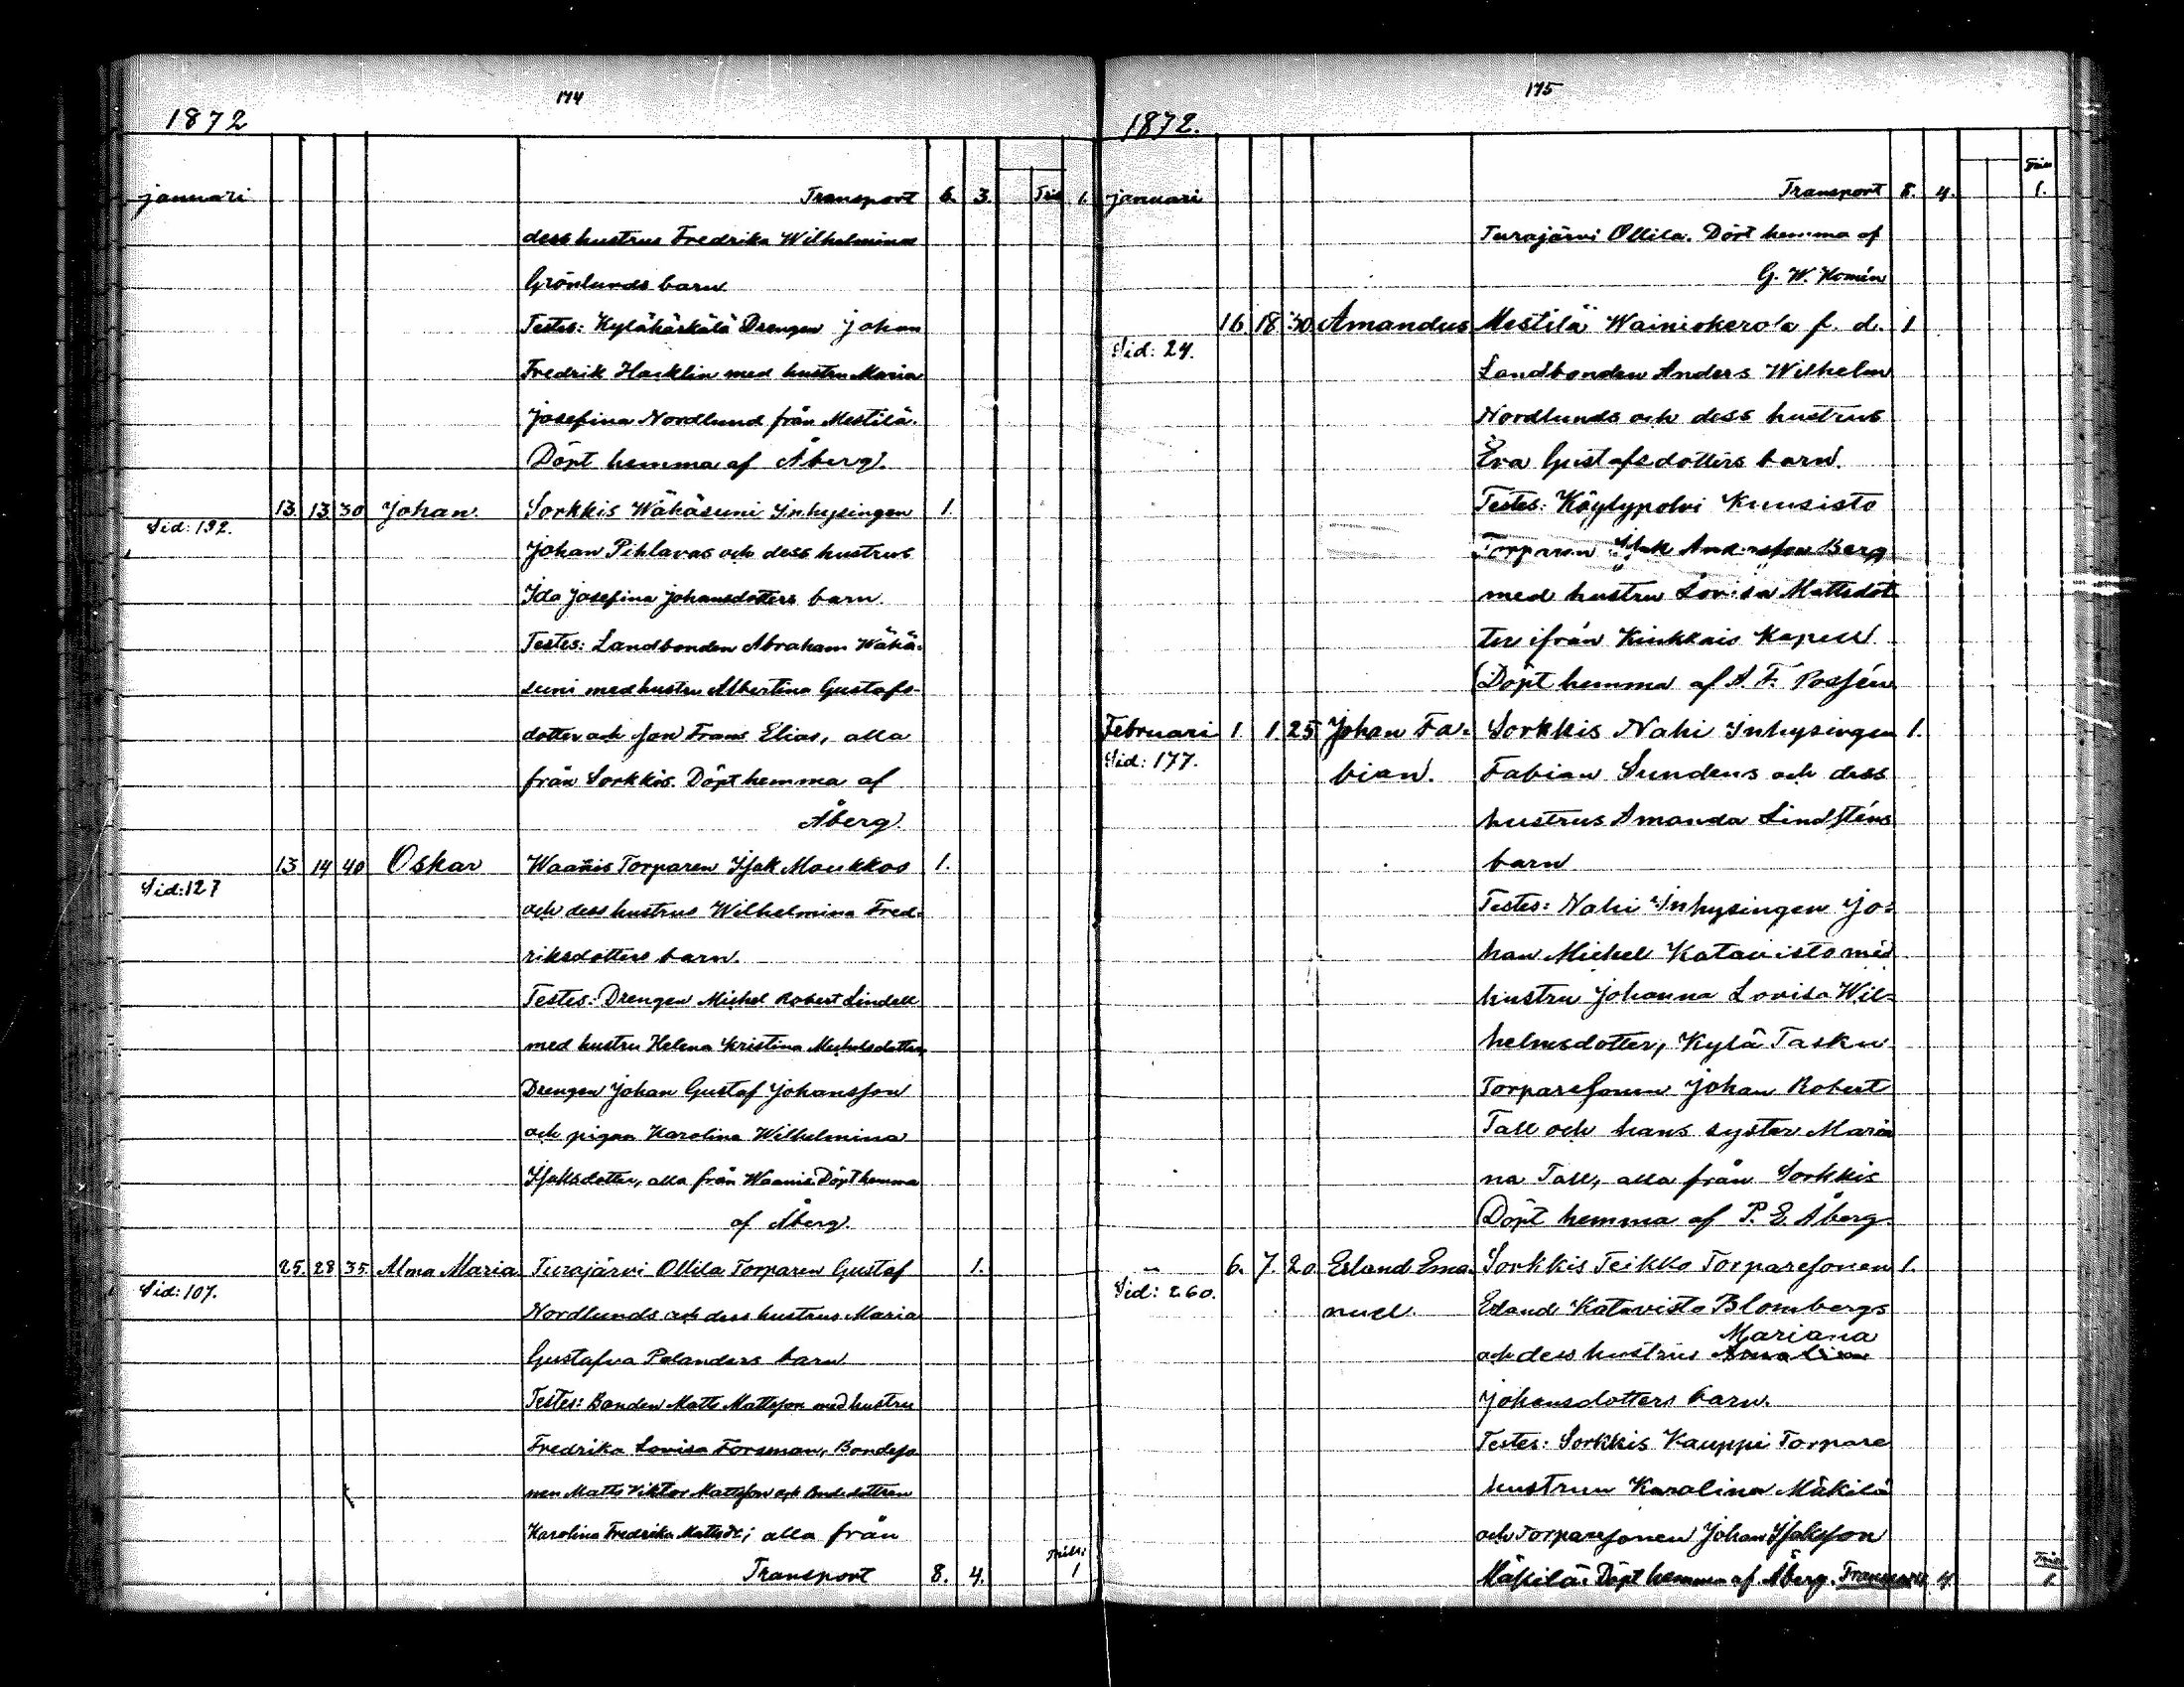 174
1872
januari Transport 6. 3. 1.
dess hustrus Fredrika Wilhelmina
Grönlunds barn
Testes: Kylähärkälä Drengen Johan
Fredrik Hacklin med hustru Maria
Josefina Nordlund från Mestilä.
Döpt hemma af Åberg.
13. 13 30 Johan. Sorkkis Wähäsuni Inhysingen 1.
Sid: 192.
Johan Pihlavas och dess hustrus
Ida Josefina Johansdotters barn.
Testes: Landbonden Abraham Wähä-
suni med hustru Albertina Gustafs-
dotter och son Frans Elias, alla
från Sorkkis. Döpt hemma af
Åberg.
13 14 40 Oskar Waanis Torparen Isak Moukkos 1.
Sid: 127
och dess hustrus Wilhelmina Fred-
riksdotters barn.
Testes: Drengen Michel Robert Lindell
med hustru Helena Kristina Michelsdotter
Drengen Johan Gustaf Johansson
och pigan Karolina Wilhelmina
Isaksdotter, alla från Waanis Döpt hemma
af Åberg.
25. 28 35. Alma Maria Turajärvi Ollila Torparen Gustaf 1.
Sid: 107.
Nordlunds och dess hustrus Maria
Gustafva Polanders barn
Testes: Bonden Matts Mattsson med hustru
Fredrika Lovisa Forsman, Bondeso
nen Matts Viktor Mattsson och Bondedottren
Karolina Fredrika Mattsdt; alla från
Transport 8. 4. 1
175
1872.
januari Transport 8. 4. 1.
Turajärvi Ollila. Döpt hemma af
G. W. Homén
16 18 30 Amandus Mestilä Wainiokerola f. d. 1
Sid: 24.
Landbonden Anders Wilhelm
Nordlunds och dess hustrus
Eva Gustafsdotters barn.
Testes: Köylypolvi Kuusisto
Torparen Isak Andersson Berg
med hustru Lovisa Mattsdot
ter ifrån Kinkkais Kapell
Döpt hemma af A. F. Possén
Februari 1. 1. 25 Johan Fa- Sorkkis Nahi Inhysingen 1.
Sid: 177.
bian. Fabian Sundens och dess
hustrus Amanda Lindsténs
barn
Testes: Nahi Inhysingen Jo-
han Michel Katavisto med
hustru Johanna Lovisa Wil-
helmsdotter, Kylä Tasku
Torparesonen Johan Robert
Tall och hans syster Maria
na Tall, alla från Sorkkis
Döpt hemma af P. E. Åberg.
" 6. 7. 20. Erland Ema- Sorkkis Teikko Torparesonen 1.
Sid: 260.
nuel. Erland Katavisto Blombergs
Mariana
och dess hustrus
Johansdotters barn.
Testes: Sorkkis Kauppi Torpare
hustrun Karolina Mäkilä
och Torparesonen Johan Isaksson
Mäkilä. Döpt hemma af Åberg. Transport 4. 1.